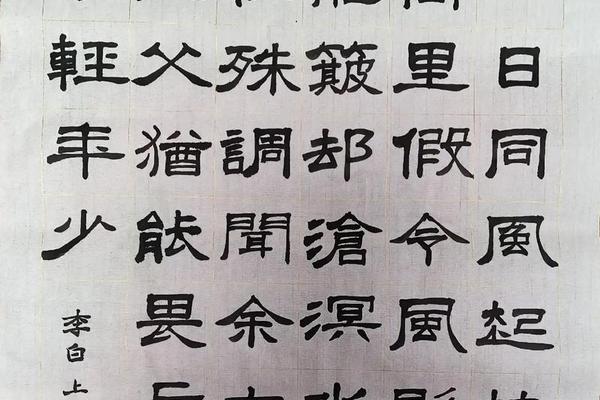 日同風起
里假令風
簸却滄溟
殊調聞余
父猶能畏
輕年少
李白上